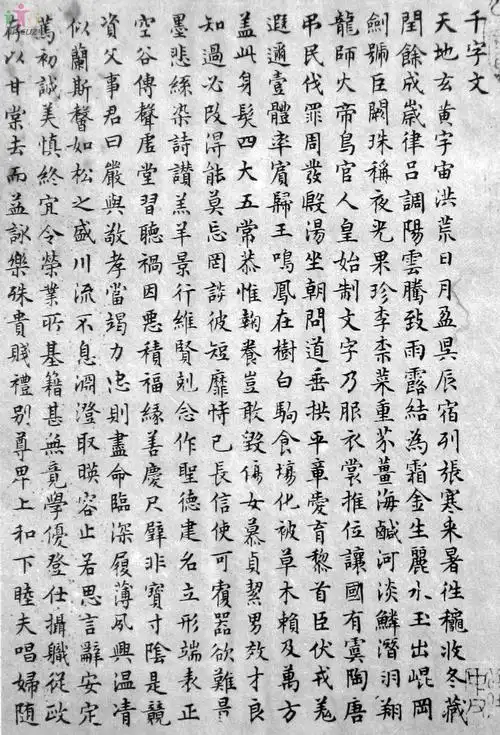 千字文
天地玄黃宇宙洪荒日月盈昃辰宿列張寒来暑徃穐收冬藏
閏餘成嵗律呂調陽雲騰致雨露結為霜金生麗水玉出崐岡
劍號巨闕珠稱夜光果珍李柰菜重芥薑海鹹河淡鱗潛羽翔
龍師火帝鳥官人皇始制文字乃服衣裳推位讓國有虞陶唐
弔民伐罪周發殷湯坐朝問道垂拱平章愛育黎首臣伏戎羌
遐邇壹體率賓歸王鳴鳳在樹白駒食場化被草木賴及萬方
盖此身髮四大五常恭惟鞠養豈敢毀傷女慕貞絜男效才良
知過必改得能莫忘罔談彼短靡恃己長信使可覆器欲難量
墨悲絲染詩讚羔羊景行維賢剋念作聖德建名立形端表正
空谷傳聲虛堂習聽禍因悪積福緣善慶尺璧非寶寸陰是競
資父事君曰嚴與敬孝當竭力忠則盡命臨深履薄夙興温凊
似蘭斯馨如松之盛川流不息淵澄取暎容止若思言辭安定
篤初誠美慎終宜令榮業所基籍甚無竟學優登仕攝職從政
存以甘棠去而益詠樂殊貴賤禮別尊卑上和下睦夫唱婦随